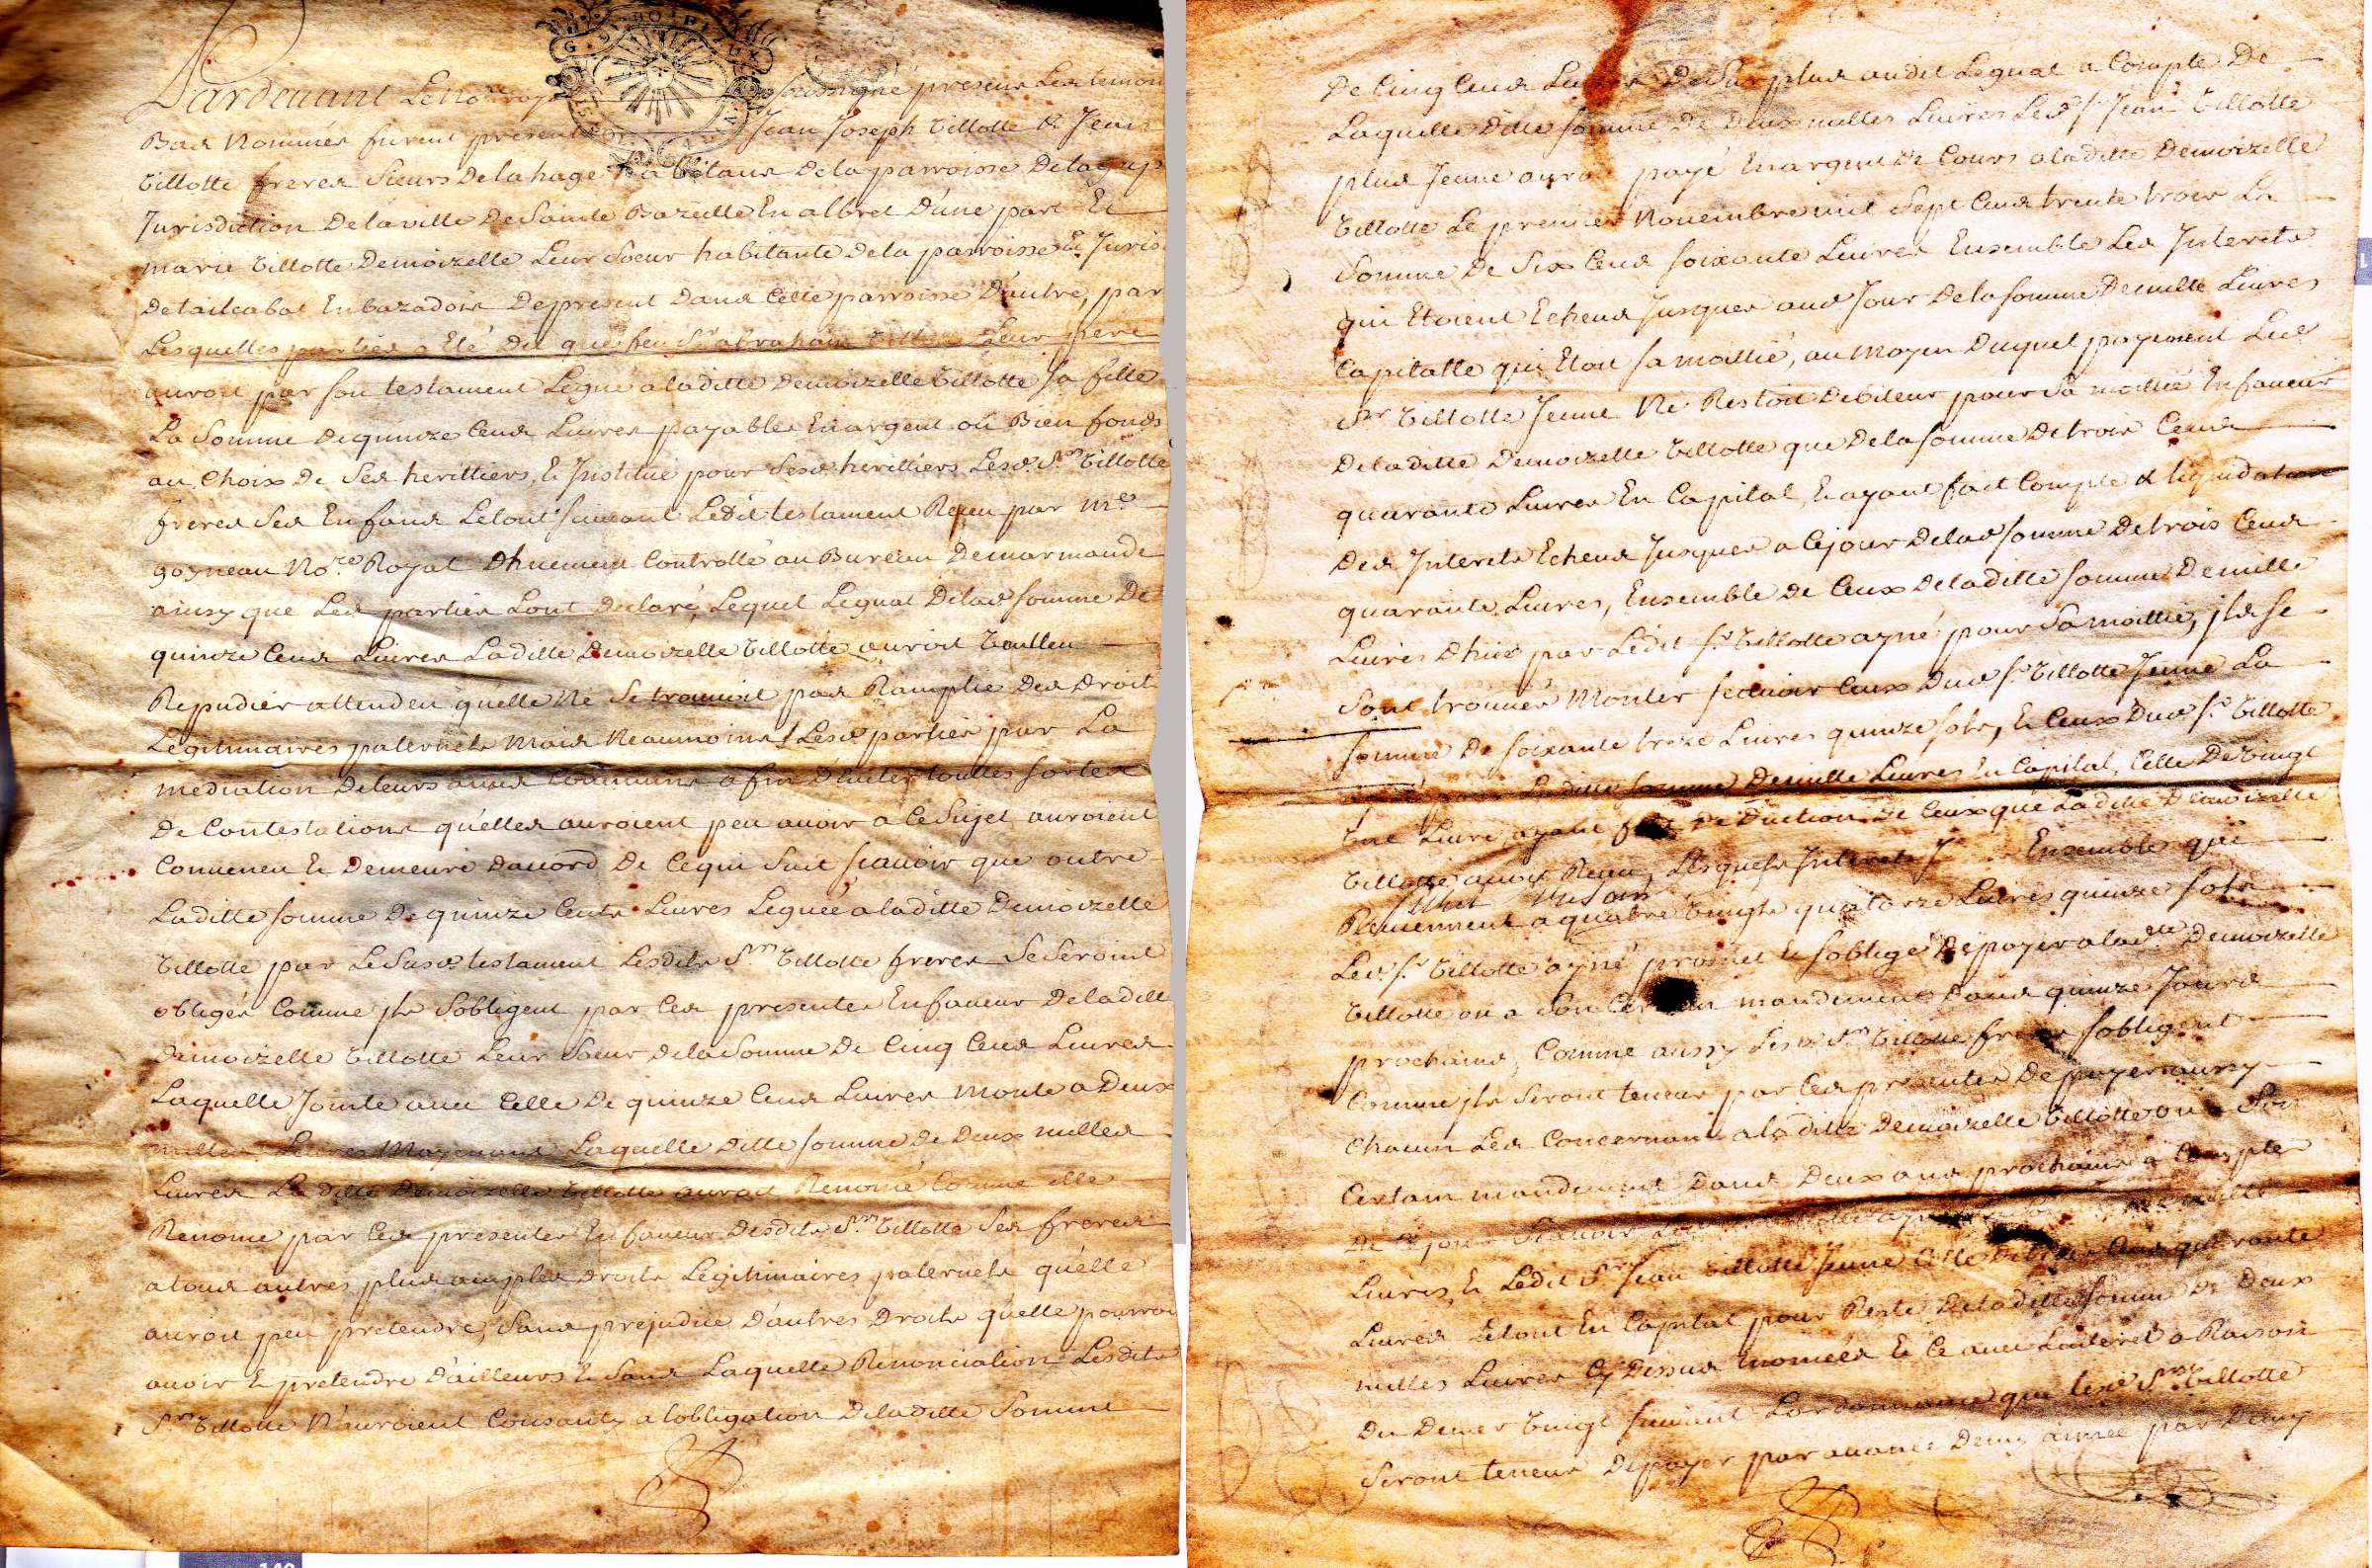 Pardevant Le No.re Roy soussigné presens Les temoin
Bas Nommés furent presens Jean Joseph Tillotte & Jean
Tillotte freres Sieurs De la hage habitans De la parroisse De
Jurisdiction De la ville De Sainte Bazeille En albret D'une part Et
marie Tillotte Demoizelle Leur Soeur habitante De la parroisse Juris
De tailcabat En bazadois De present Dans Cette parroisse D'autre, par
Lesquelles parties a Eté Dit que feu Sr abraham Tillotte Leur pere
auroit par son testament Legué a laditte Demoizelle Tillotte sa fille
La Somme De quinze Cens Livres payables En argent ou Bien fonds
au Choix De Ses herittiers, Et Institué pour Sesd. herittiers Lesd. Srs Tillotte
freres Ses Enfans Le tout suivant Ledit testament Reçeu par Me
goyneau No.re Royal Dhuement Controllé au Bureau De marmande
ainsy que Les parties L'ont Declaré, Lequel Leguat De lad somme De
quinze Cens Livres Laditte Demoizelle Tillotte auroit Voulleu
Repudier attendeu qu'elle Ne Se trouvoit pas Ramplie Des Droits
Legitimaires paternels Mais Neaumoins Lesd parties par La
mediation De leurs amis Communs afin D'Eviter touttes sortes
De Contestations qu'elles auroient peu avoir a Ce Sujet auroient
Conveneu Et Demeuré D'accord De Ce qui Suit sçavoir que outre
Laditte somme De quinze Cents Livres Leguée a laditte Demoizelle
Tillotte par Le Susd. testament Lesdits Srs Tillotte freres Se Seroint
obligés Comme jls S'obligent par Ces presentes En faveur De laditte
Demoizelle Tillotte Leur Soeur De la Somme De Cinq Cens Livres
Laquelle Jointe avec Celle De quinze Cens Livres Monte a Deux
milles Livres Moyenant Laquelle Ditte somme De Deux milles
Livres La ditte Demoizelle Tillotte auroit Renoncé Comme elle
Renonce par Ces presentes En faveur Desdits Srs Tillotte Ses freres
a tous autres plus amples Droits Legitimaires paternels qu'elle
auroit peu pretendre, Sans prejudice D'autres Droits qu'elle pourroit
avoir Et pretendre D'ailleurs Et Sans Laquelle Renonciation Lesdits
Srs Tillotte N'auroient Consanty a l'obligation De laditte Somme
De Cinq Cens Livres De Surplus audit Leguat a Compte De
Laquelle Ditte somme De Deux milles Livres Led Sr Jean Tillotte
plus Jeune auroit payé En argent De Cours a laditte Demoizelle
Tillotte Le premier Novembre mil Sept Cens trente trois La
Somme De Six Cens soixante Livres Ensemble Les Interets
qui Etoient Echeus Jusques aud Jour De la somme De mille Livres
Capitalle qui Etoit sa moittié, au Moyen Duquel payement Led
Sr Tillotte Jeune Ne Restoit Debiteur pour Sa moittié En faveur
De laditte Demoizelle Tillotte que De la somme De trois Cens
quarante Livres En Capital, Et ayant fait Compte & liquidation
Des Interets Echeus Jusques a Ce jour De lad somme De trois Cens
quarante Livres, Ensemble De Ceux De laditte somme De mille
Livres Dhüe par Ledit Sr Tillotte ayné pour Sa moittié, jls se
Sont trouvés Monter sçavoir Ceux Dud Sr Tillotte Jeune La
somme De soixante treze Livres quinze sols, Et Ceux Dud Sr Tillotte
Laditte somme De mille Livres En Capital, Celle De Vingt
Une Livre, ayant fait De Duction De Ceux que Laditte Demoizelle
Tillotte avoit Reçeu, Lesquels Interets Ensemble qui
Reviennent a quatre Vingts quatorze Livres quinze sols
Led. Sr Tillotte ayné promet Et s'oblige De payer a lad.tte Demoizelle
Tillotte ou a Son Certain mandement Dans quinze Jours
prochains, Comme aussy Lesd. Srs Tillotte freres s'obligent
Comme jls Seront teneus par Ces presentes De payer aussy
Chacun Les Concernant a la ditte Demoizelle Tillotte ou a Son
Certain mandement Dans Deux ans prochains a Compter
De Ce jour Sçavoir mille
Livres, Et Ledit Sr Jean Tillotte Jeune Celle De trois Cens quarante
Livres Le tout En Capital pour Reste De laditte somme De Deux
milles Livres Cy Dessus Enoncées Et Ce avec L'interet a Raison
Du Denier Vingt suivant L'ordonnance que lesd Srs Tillotte
Seront teneus De payer par avance Demy année par Demy